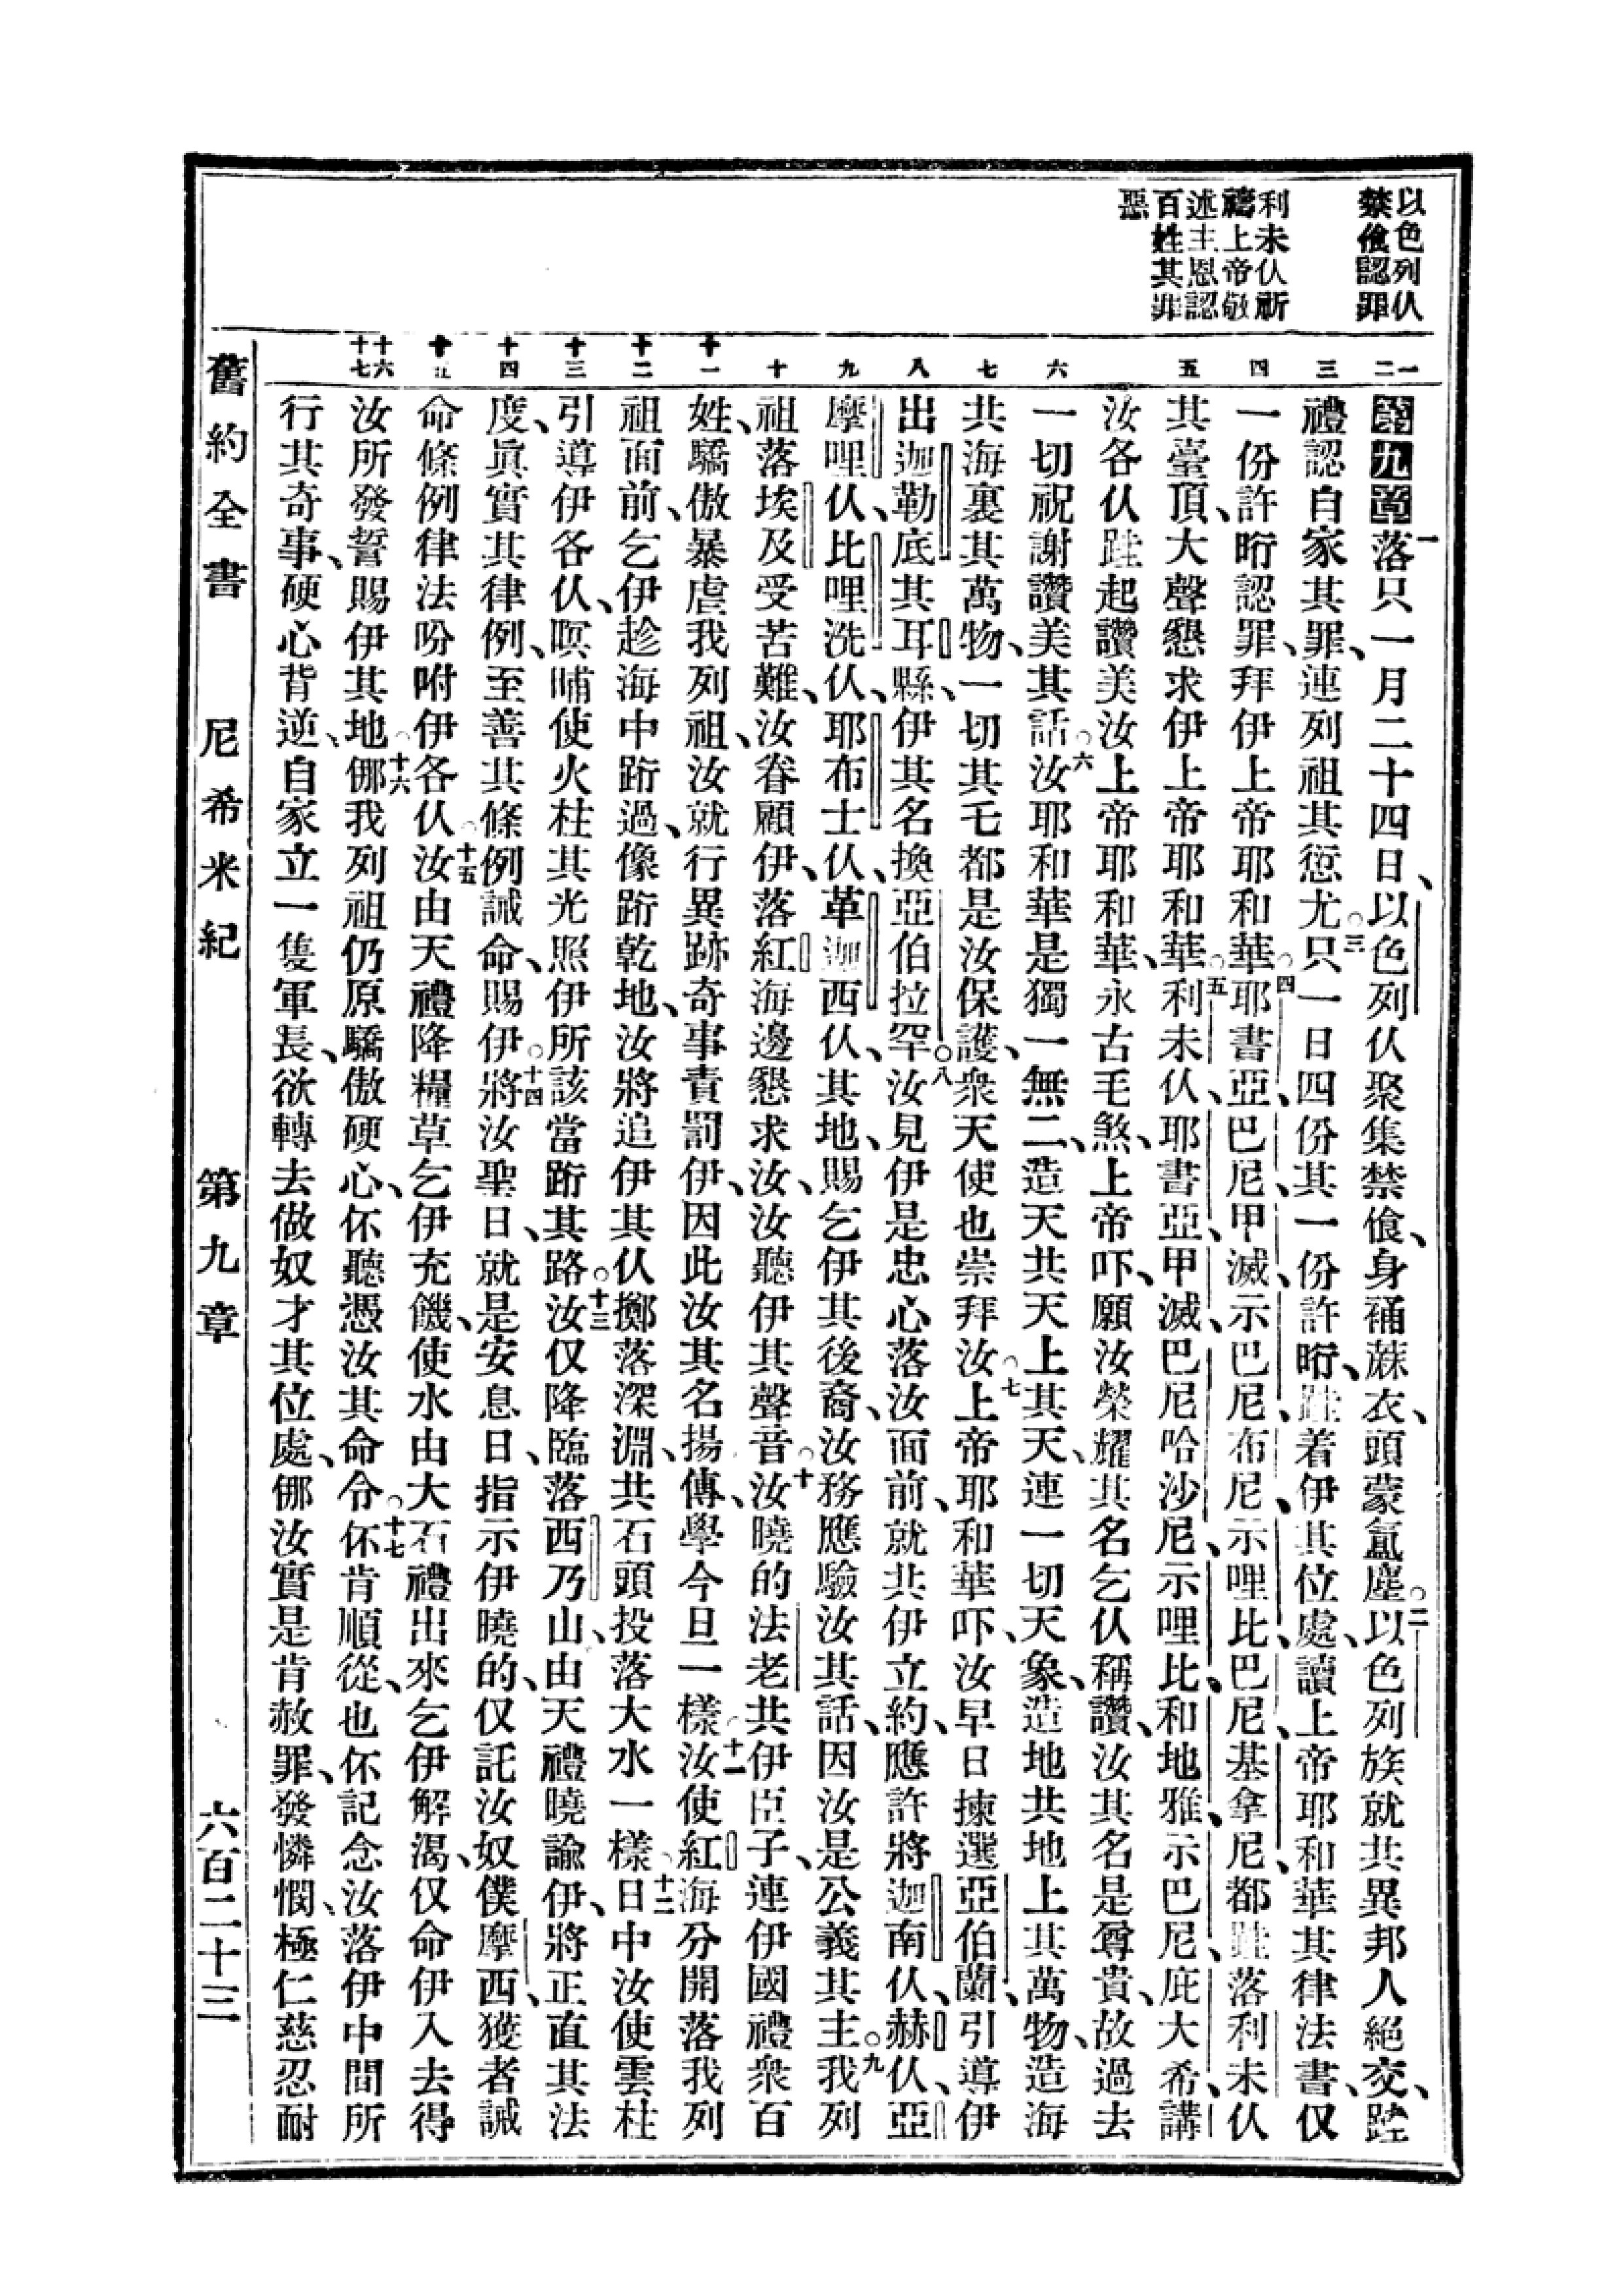 以色列仈
禁飱認罪
利未仈祈
禱上帝敬
述主恩認
百姓其罪
惡
一 二 三 四 五 六 七 八 九 十 十一 十二 十三 十四 十五 十六 十七
第九章一落只一月二十四日、以色列仈聚集禁飱、身補蔴衣、頭蒙塵。二以色列族就共異邦人絕交、𨂿
禮認自家其罪、連列祖其愆尤。三只一日四份其一份許晘、𨂿着伊其位處、讀上帝耶和華其律法書、仅
一份許晘認罪、拜伊上帝耶和華。四耶書亞、巴尼、甲滅、示巴尼、布尼、示哩比、巴尼、基拿尼、都𨂿落利未仈
其臺頂、大聲懇求伊上帝耶和華。五利未仈耶書亞、甲滅、巴尼、哈沙尼、示哩比、和地雅、示巴尼、庇大希、講
汝各仈𨂿起讚美汝上帝耶和華、永古毛煞、上帝吓、願汝榮耀其名乞仈稱讚、汝其名是尊貴、故過去
一切祝謝讚美其話。六汝耶和華是獨一無二、造天共天上其天、連一切天象、造地共地上其萬物、造海
共海裏其萬物、一切其乇都是汝保護、衆天使也崇拜汝。七上帝耶和華吓、汝早日揀選亞伯蘭、引導伊
出迦勒底其耳縣、伊其名換亞伯拉罕。八汝見伊是忠心落汝面前、就共伊立約、應許將迦南仈、赫仈、亞
摩哩仈、比哩洗仈、耶布士仈、革迦西仈、其地、賜乞伊其後裔、汝務應驗汝其話、因汝是公義其主。九我列
祖落埃及受苦難、汝眷顧伊、落紅海邊懇求汝、汝聽伊其聲音。十汝曉的法老共伊臣子、連伊國禮衆百
姓、驕傲暴虐我列祖、汝就行異跡奇事責罰伊、因此汝其名揚傳、學今旦一樣。十一汝使紅海分開落我列
祖面前、乞伊趁海中跧過、像跧乾地、汝將追伊其仈擲落深淵、共石頭投落大水一樣。十二日中汝使雲柱
引導伊各仈、暝晡使火柱其光照伊所該當跧其路。十三汝仅降臨落西乃山、由天禮曉諭伊、將正直其法
度、眞實其律例、至善其條例誡命、賜伊。十四將汝聖日、就是安息日、指示伊曉的、仅託汝奴僕摩西、獲者誡
命條例律法吩咐伊各仈。十五汝由天禮降糧草乞伊充饑、使水由大石禮出來、乞伊解渴、仅命伊入去得
汝所發誓賜伊其地。十六㑚我列祖仍原驕傲硬心、伓聽憑汝其命令。十七伓肯順從、也伓記念汝落伊中間所
行其奇事、硬心背逆、自家立一隻軍長、欲轉去做奴才其位處、㑚汝實是肯赦罪、發憐憫、極仁慈忍耐
舊約全書 尼希米紀 第九章 六百二十三